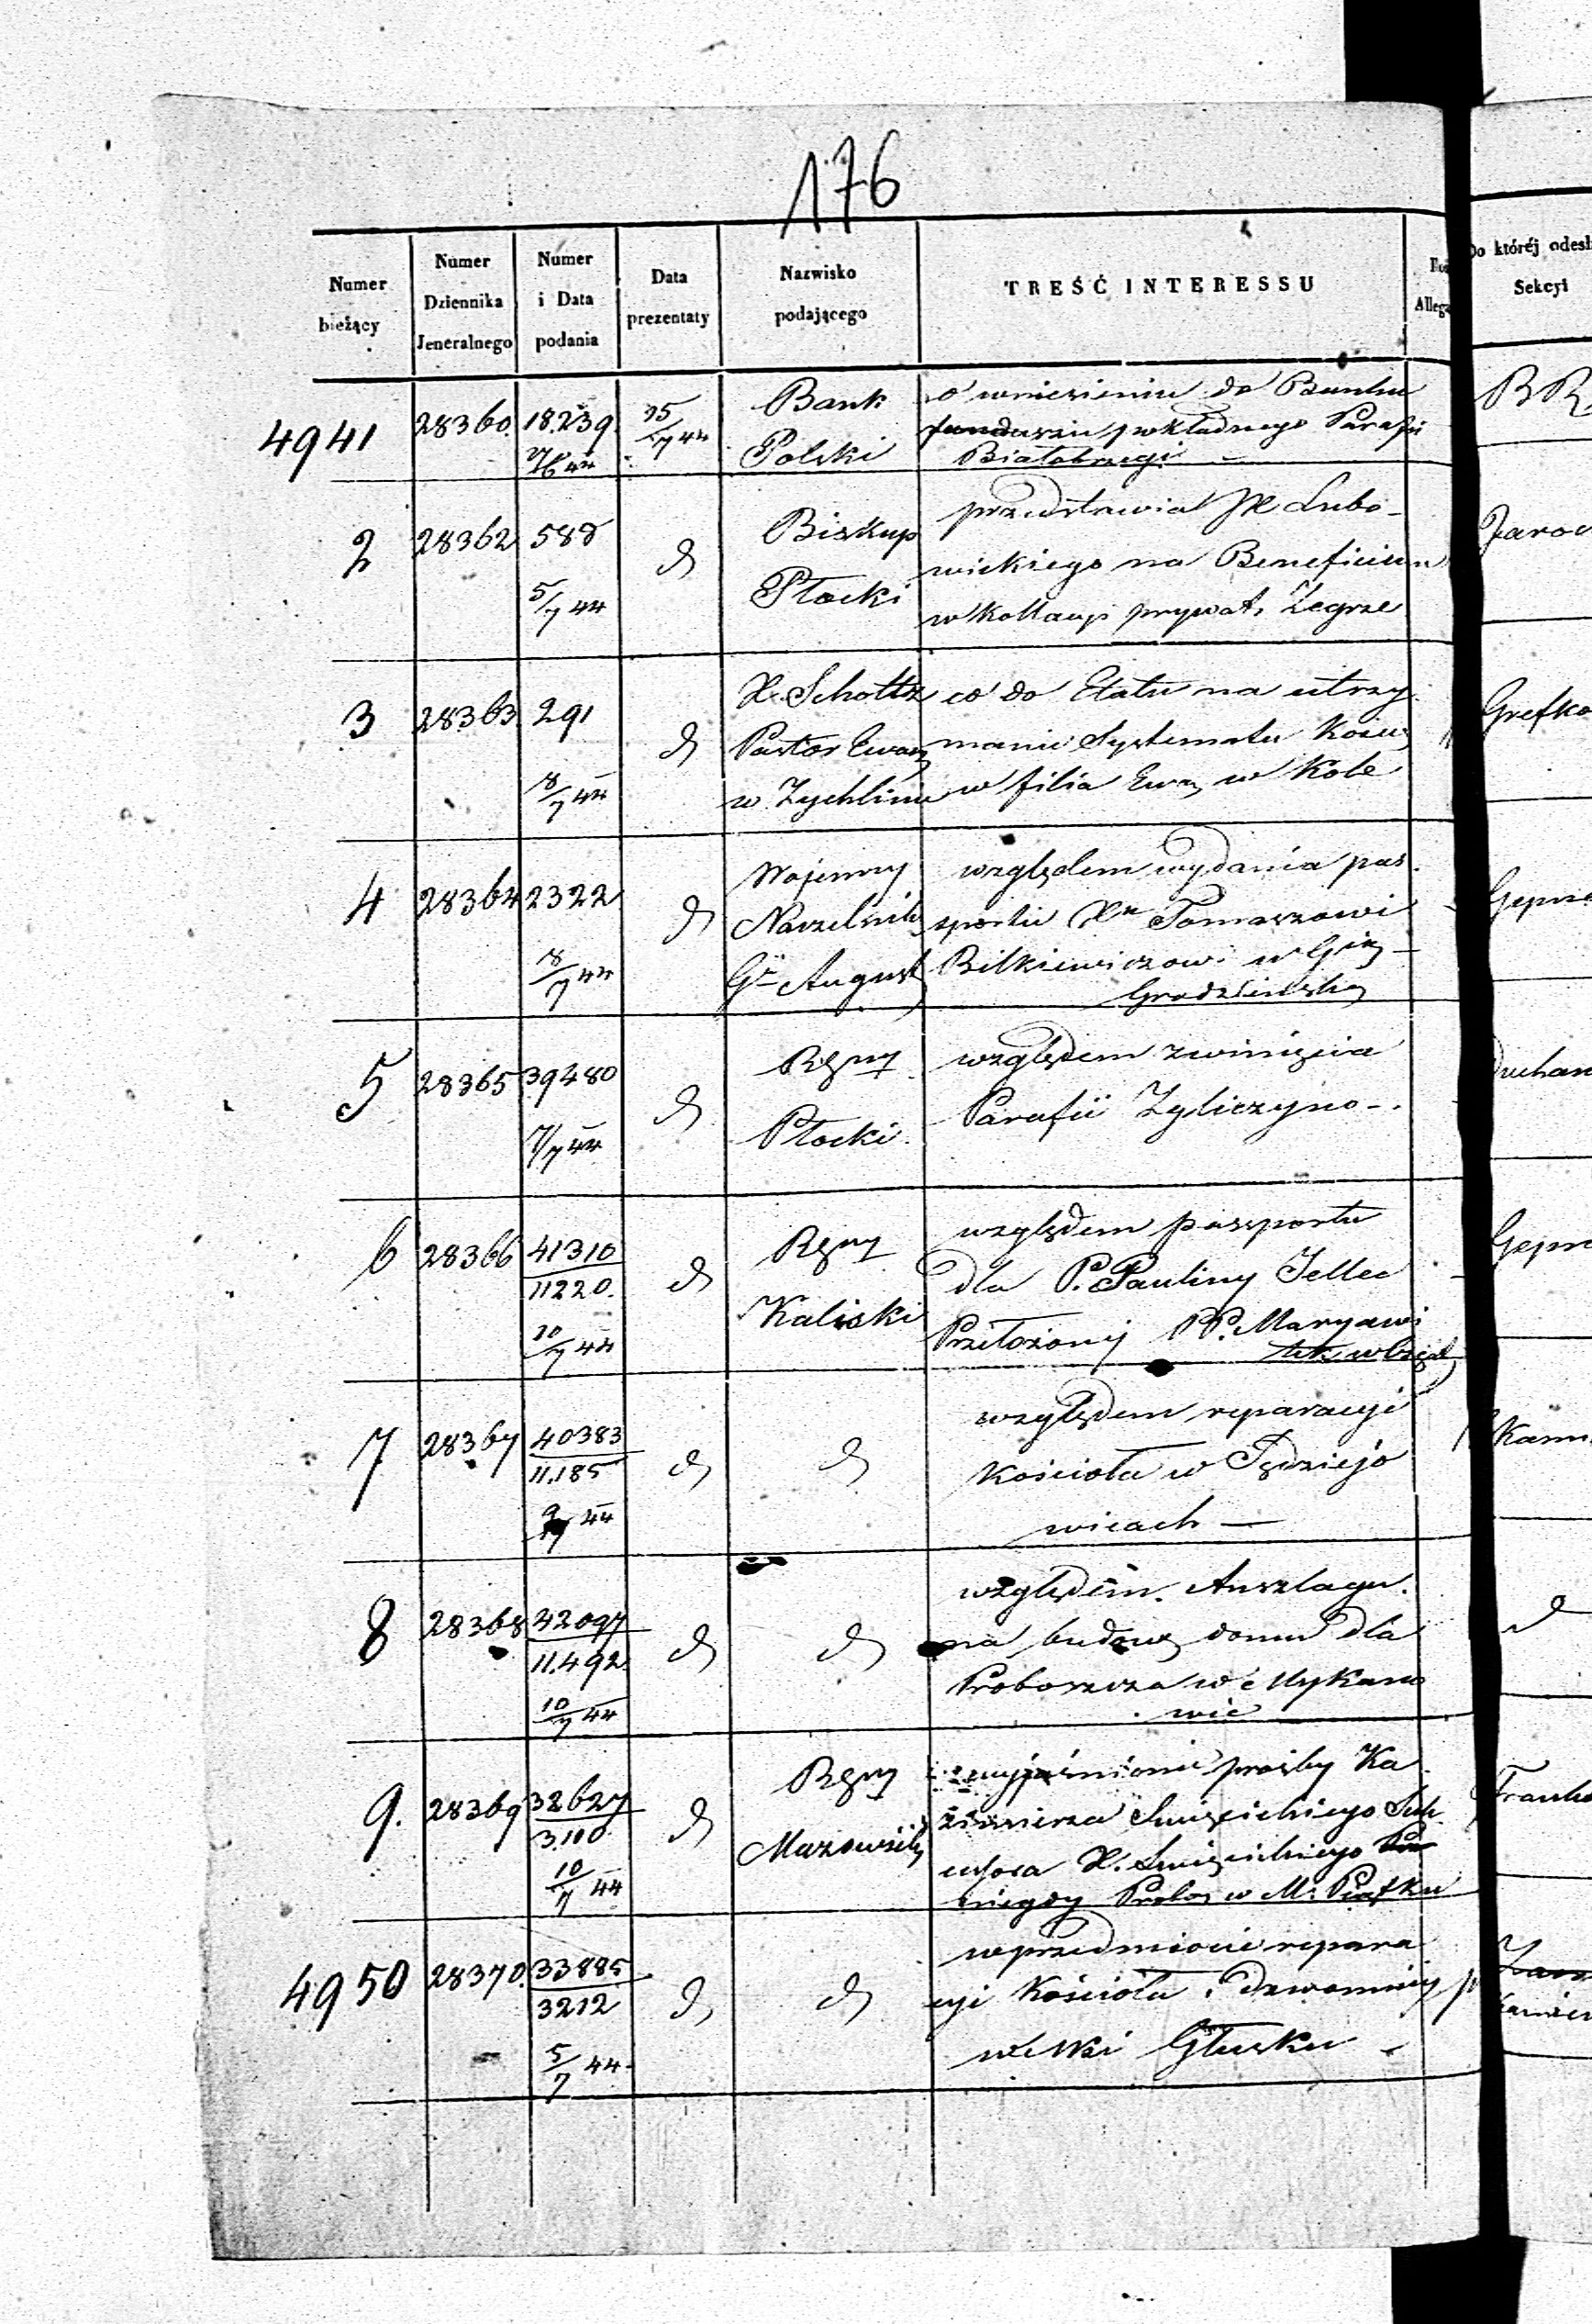 176
Numer bieżący
Numer Dziennika Jeneralnego
Numer i Data podania
Data prezentaty
Nazwisko podającego
TREŚĆ INTERESSU
Alleg
Do któréj odesł
Sekcyi
4941 28360. 18.239 6/44 15/7 44 Bank Polski
o wniesieniu do Banku
funduszu wkładnego Parafii
Białobrzegi
BR
2 28362 588 5/7 44 d Biskup Płocki
przedstawia JX Lubo-
wickiego na Beneficium
w Kollacyi prywat. Zegrze
3 28363 291 8/7 44 d X. Scholtz Pastor Ewan w Zychlinie
co do Etatu na utrzy
manie Systematu Kościo
w filia Ewa w Kole
Grefko
4 28364 2322 8/7 44 d Wojenny Naczelnik Gu August
względem wydania pas.
sportu Xu Tomaszowi
Bitkiewiczowi w Gub
Grodzieńską
5 28365 39480 7/7 44 d Rgny Płocki.
względem zwinięcia
Parafii Zyliczyno -.
6 28366 41310 11220. 10/7 44 d Rgny Kaliski
względem passportu
dla P. Pauliny Jellec
Przełożonej PP. Maryawi
tek w
7 28367 40383 11.185 9/7 44 d d
względem reparacyi
Kościoła w Tędziejo
wicach —
8 28368 42097 11.492 10/7 44 d d
względem Anszlagu
na budowę domu dla
Proboszcza w Mykano
wie
d
9. 28369 32627 3.110 10/7 44 d Rgny Mazowiecki
wyjaśnienie prośby Ka
zimierza Smięcickiego Suk
cessora X. Smięcickiego
niegdy Probos w M. Piątku
4950 28370. 33885 3212 5/7 44 d d
w przedmiocie repara
cyi Kościoła i dzwonnicy
we Wsi Głusku